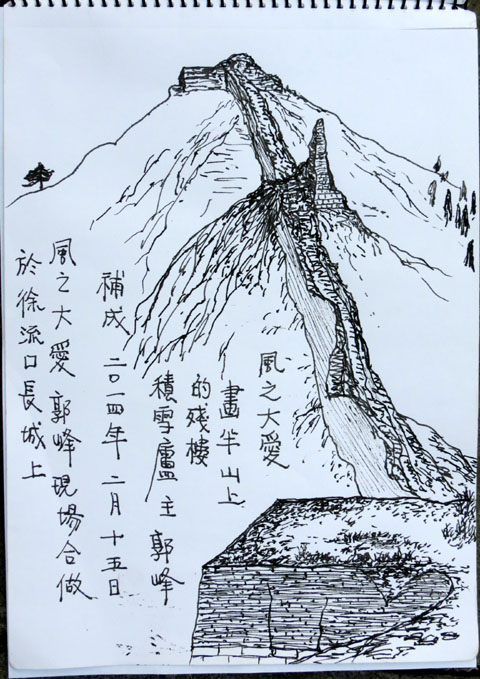 風之大愛
畫半山上
的殘樓
積雪廬主 郭峰
補成 二〇一四年 二月十五日
風之大愛 郭峰現場合做
於徐流口長城上